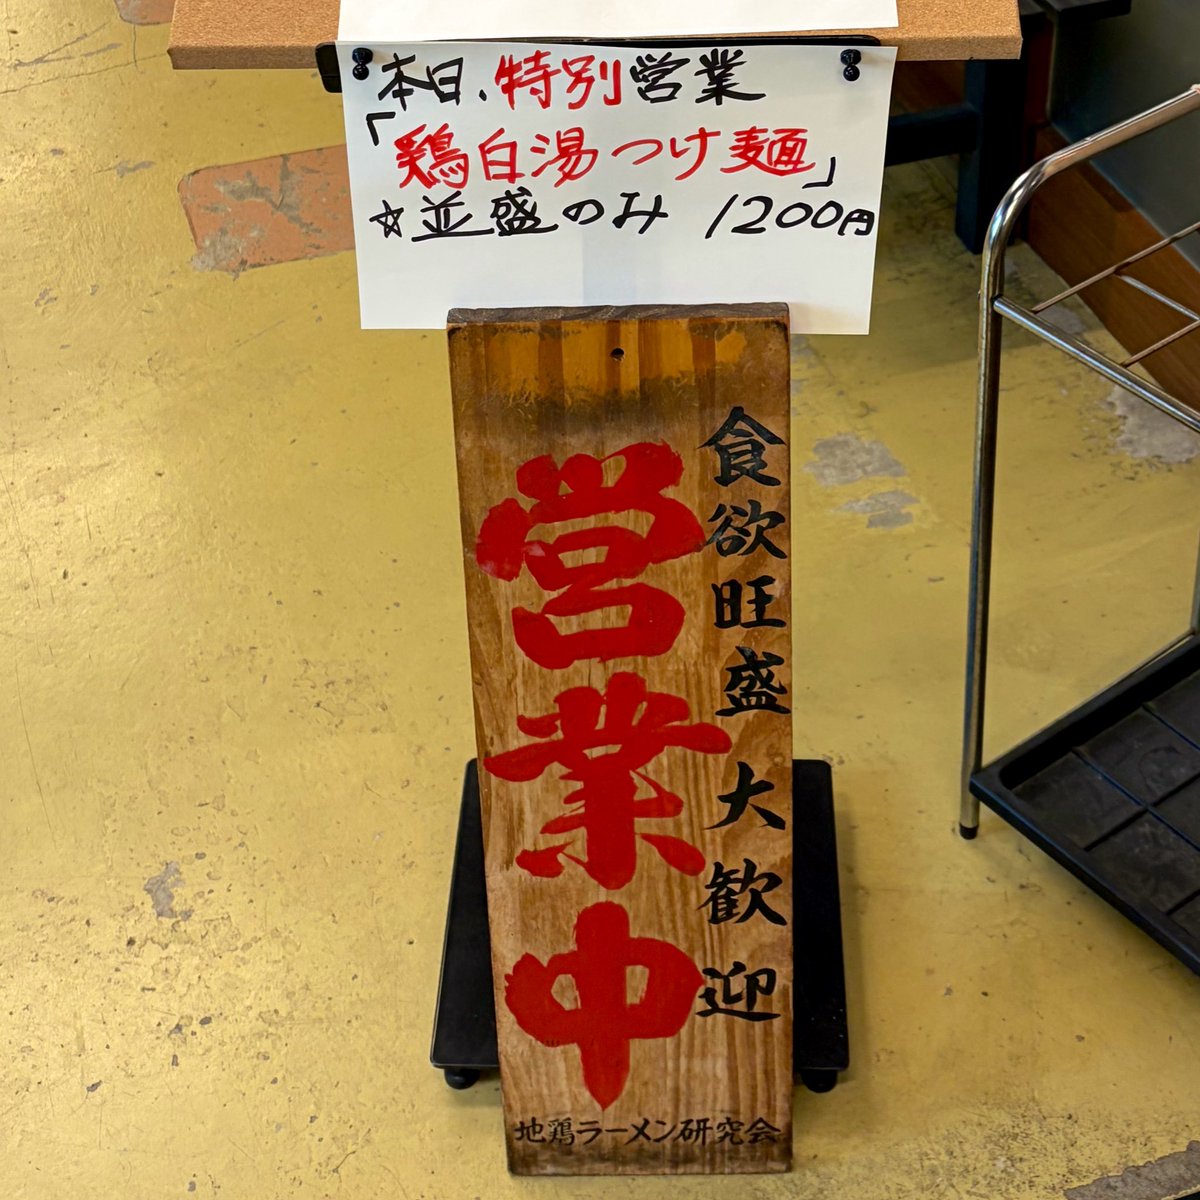 本日、特別営業
「鶏白湯つけ麺」
☆並盛のみ 1200円
食欲旺盛大歓迎
営業中
地鶏ラーメン研究会